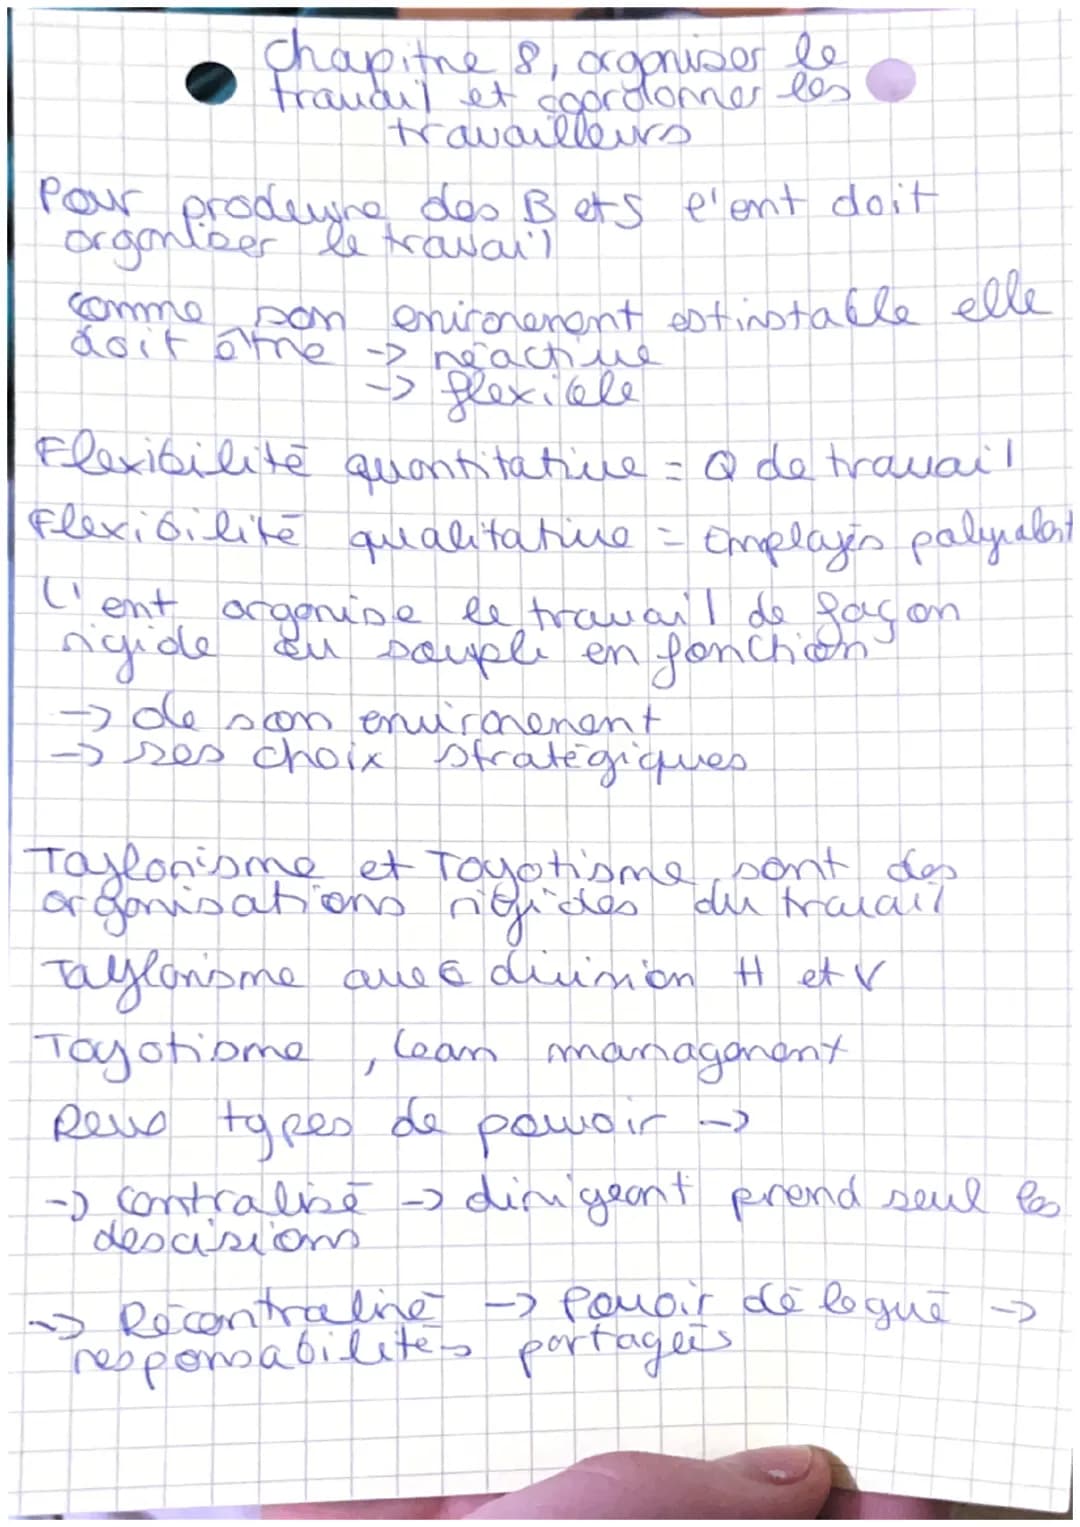 Chapitre 8, organiser le
travail et coordonner les
travailleurs
Pour produire des B et S l'ent doit
organiser le travail
comme son enironenent est instable elle
doit être -> réactive
-> flexible
Flexibilité quantitative = Q de travail
Flexibilité qualitative = Employés polyvalent
L'ent organise le travail de façon
rigide ou souple en fonction
-> de son environenent
-> ses choix stratégiques
Taylorisme et Toyotisme sont des
organisations rigides du travail
Taylorisme avec division H et V
Toyotisme, lean management
Deux types de pouvoir ->
-> Centralisé -> dirigeant prend seul les
descisions
-> Décentralisé -> Pouvoir délégué ->
responsabilités partagées